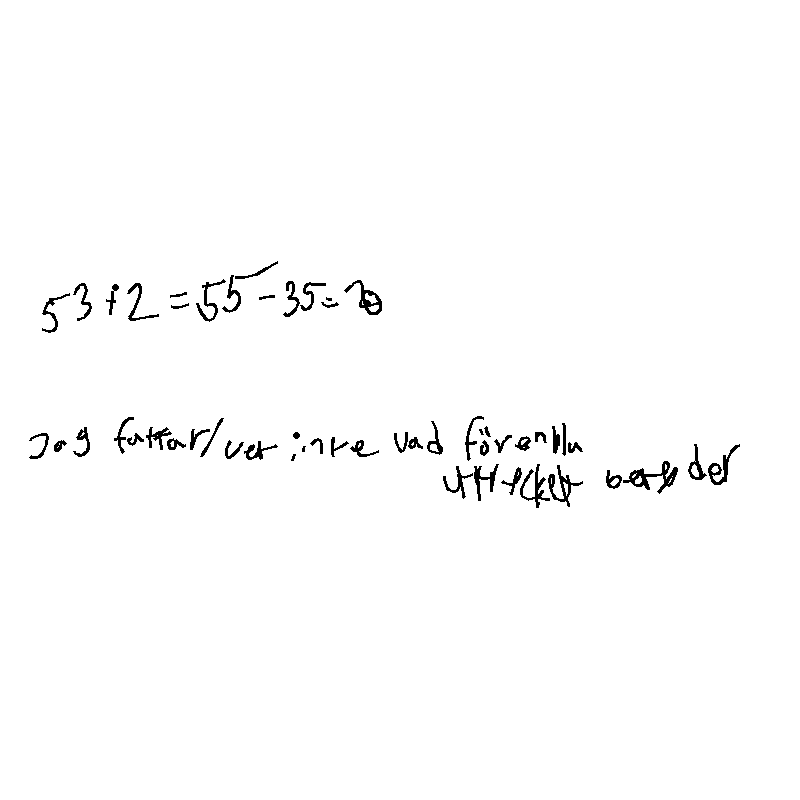 53+2=55-35=20
Jag fattar/vet inte vad förenkla
uttrycket betyder